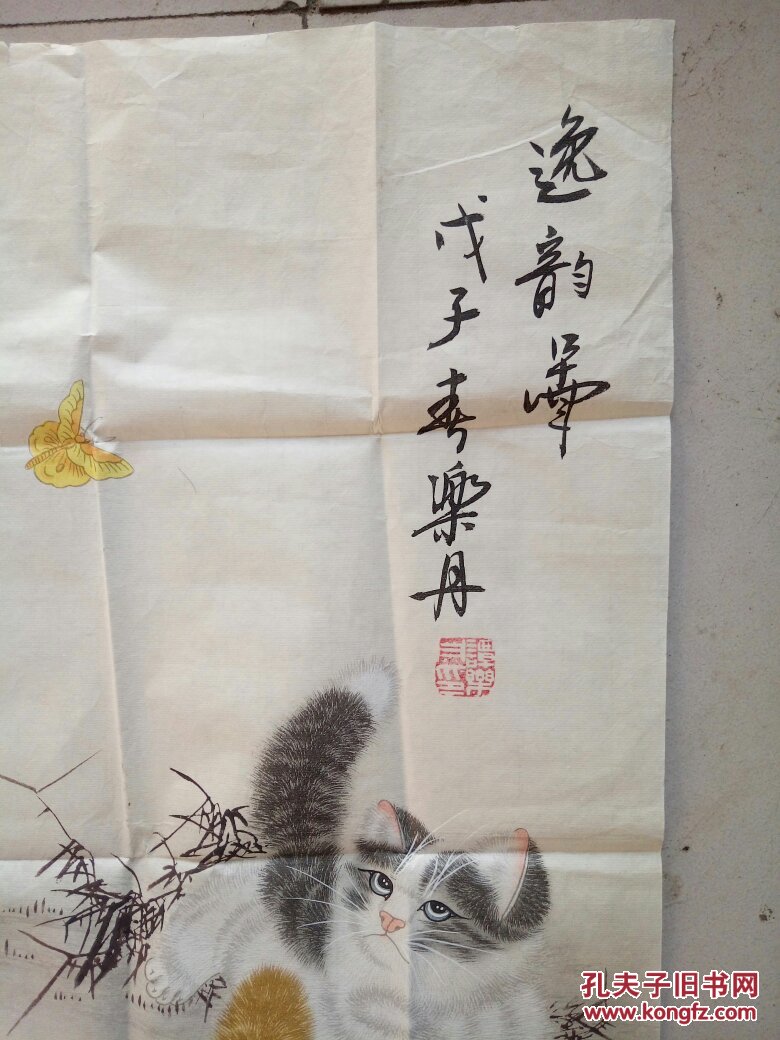 逸韵
戊子春樂丹
孔夫子旧书网
www.kongfz.com